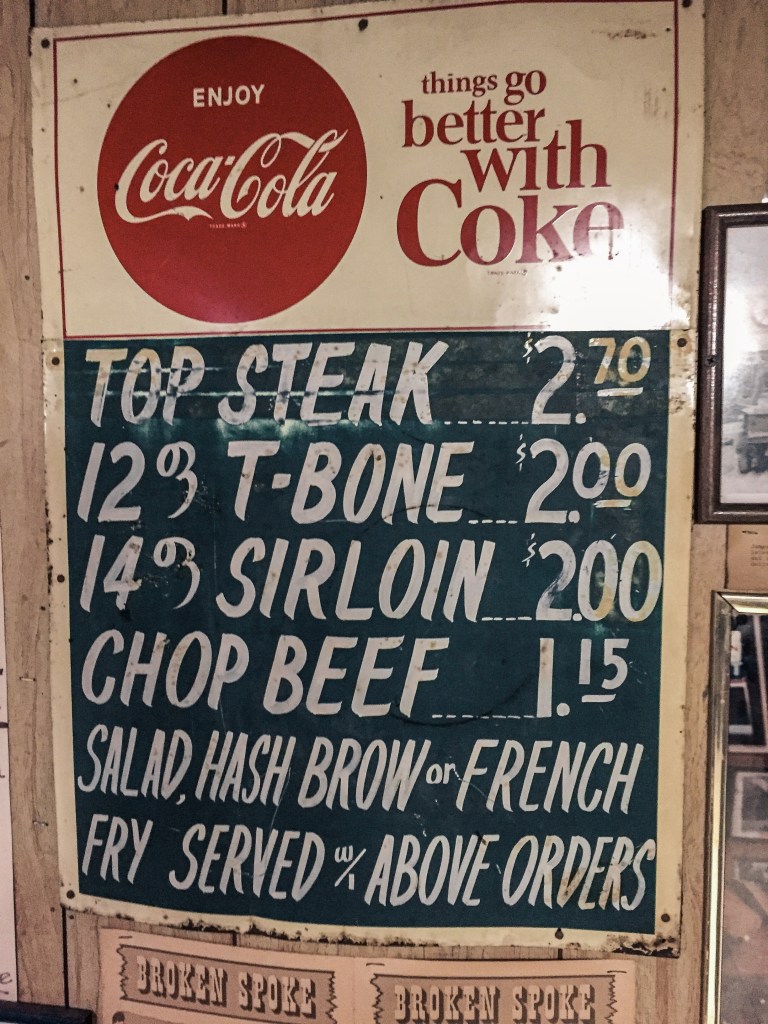 ENJOY
Coca-Cola
TRADE MARK ®
things go
better
with
Coke
TOP STEAK....$2.70
12 oz T-BONE....$2.00
14 oz SIRLOIN....$2.00
CHOP BEEF........1.15
SALAD, HASH BROW or FRENCH
FRY SERVED w/ ABOVE ORDERS
BROKEN SPOKE BROKEN SPOKE